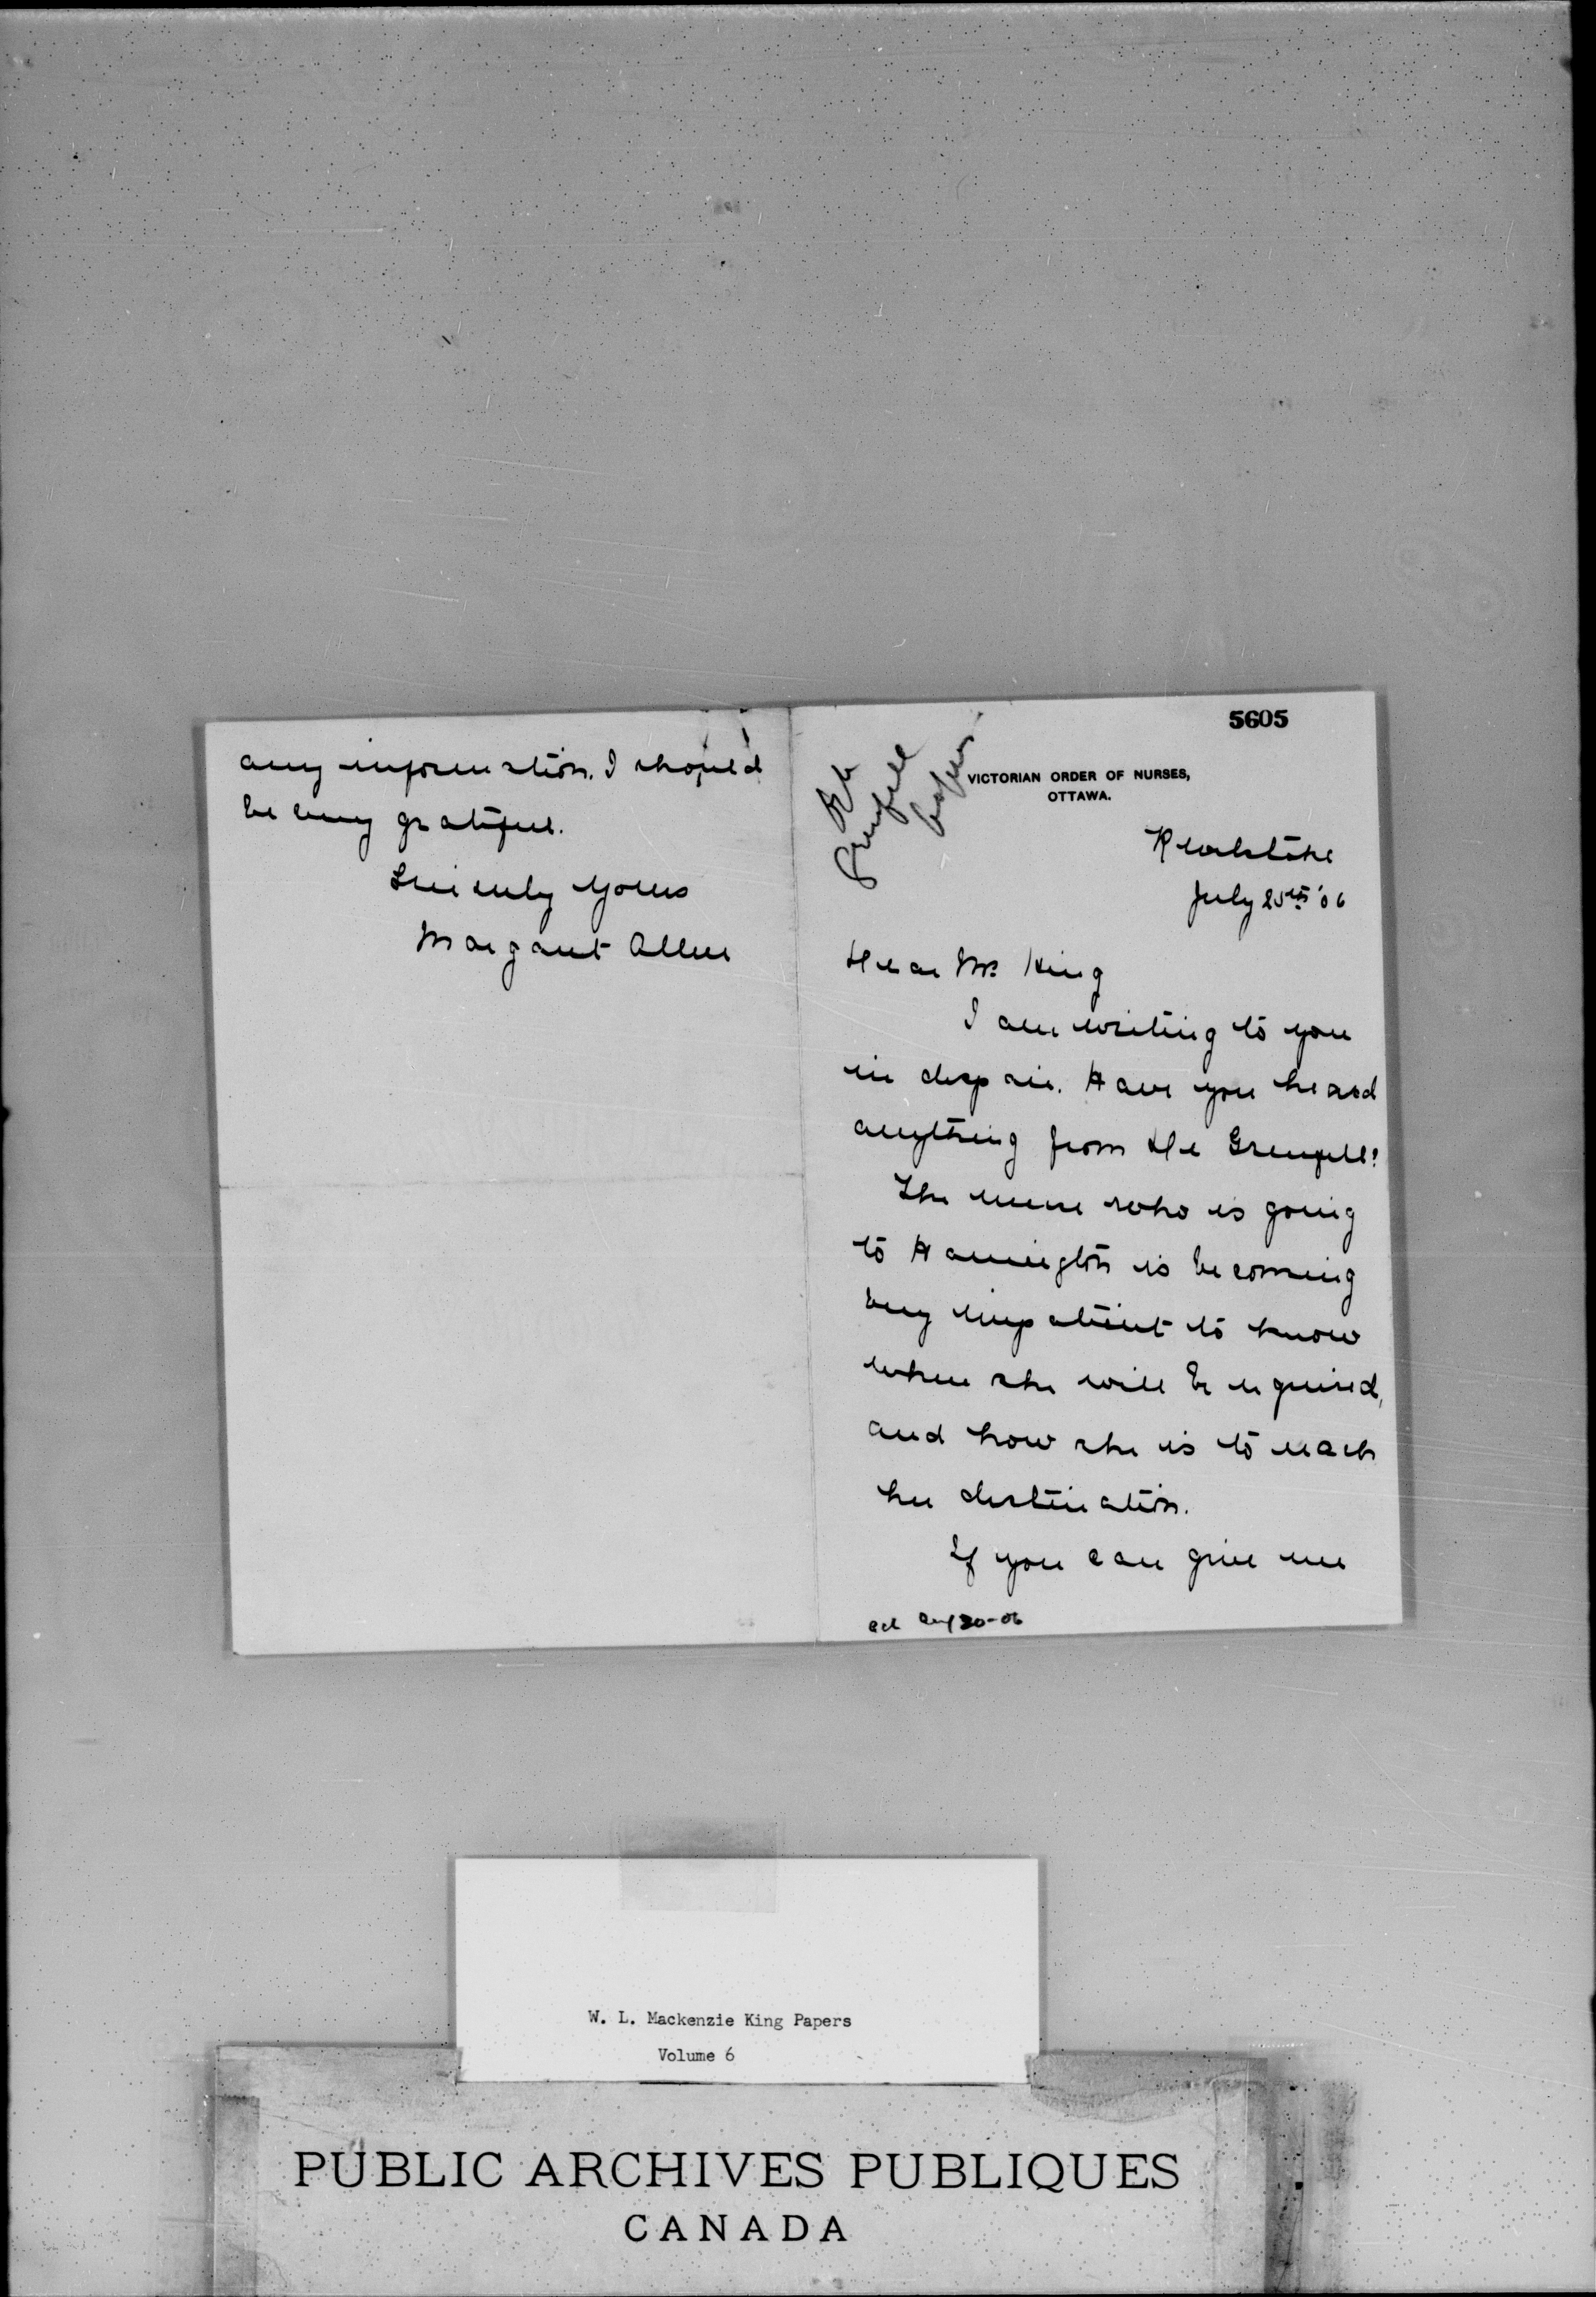 5605
Re
Grenfell
papers
VICTORIAN ORDER OF NURSES,
OTTAWA.
July 25th '06
Dear Mr. King
I am writing to you
in despair. Have you heard
anything from Dr Grenfell?
The nurse who is going
to Harrington is becoming
very impatient to know
when she will be required,
and how she is to reach
her destination.
If you can give me
Aug 20-06
any information. I should
be very grateful.
Sincerely yours
Margaret Allen
W. L. Mackenzie King Papers
Volume 6
PUBLIC ARCHIVES PUBLIQUES
CANADA